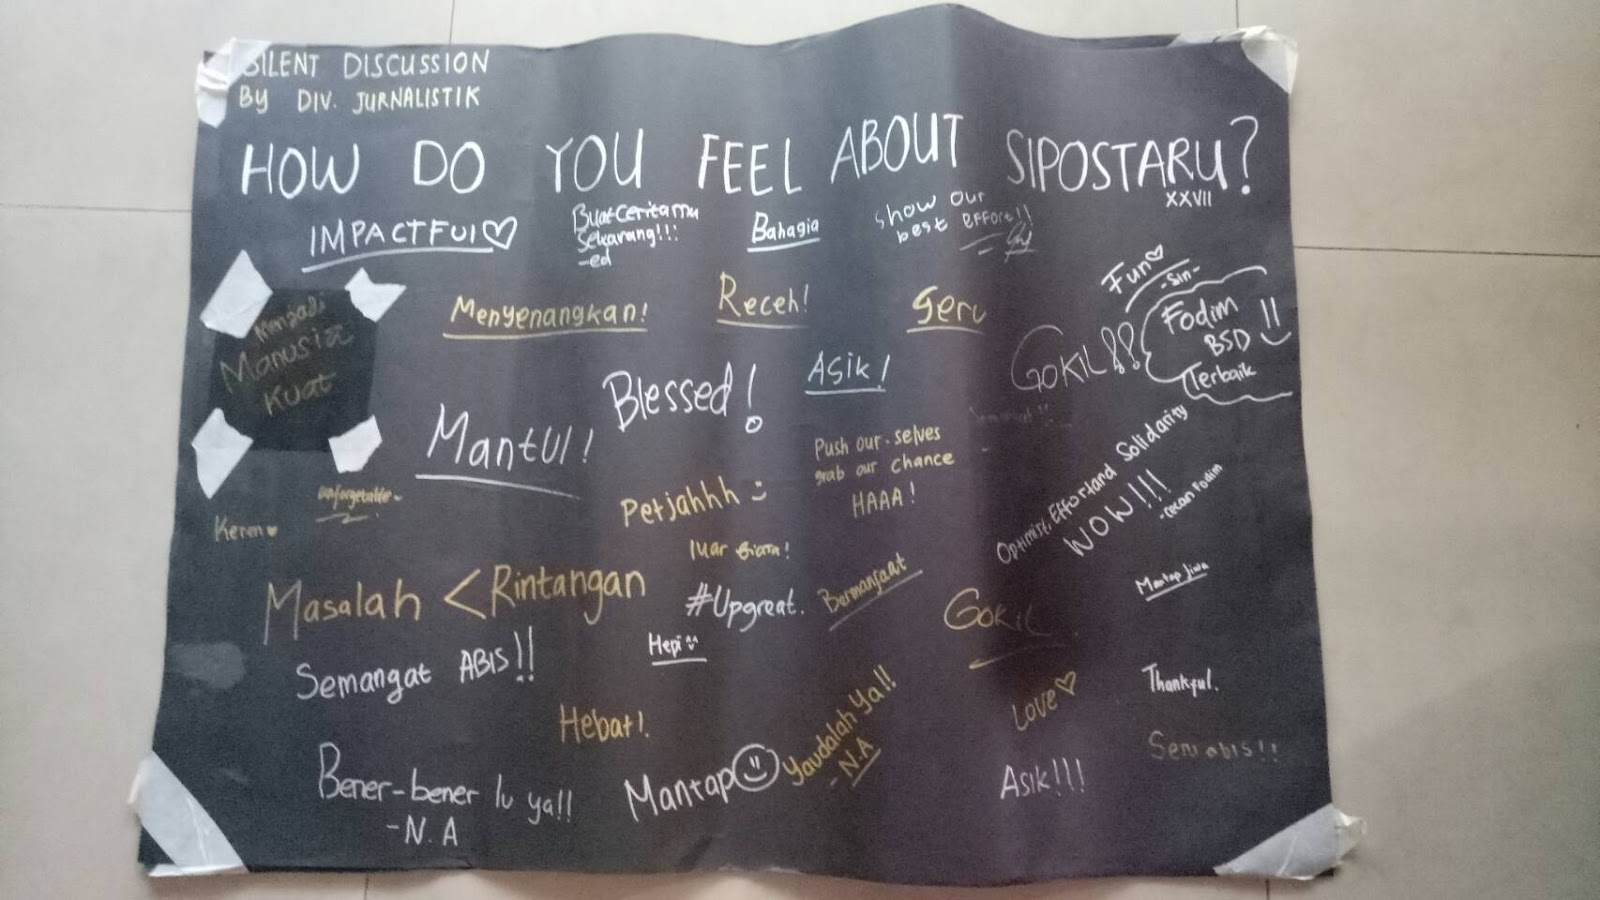 SILENT DISCUSSION
BY DIV. JURNALISTIK
HOW DO YOU FEEL ABOUT SIPOSTARU?
XXVII
IMPACTFUL
Buat Ceritamu
Sekarang!!!
-ed
Bahagia
Show our
best EFFORT!!
Fun
-Sin-
Menjadi
Manusia
Kuat
Menyenangkan!
Receh!
Seru
GOKIL!!
Fodim
BSD
Terbaik
Blessed!
Asik!
Mantul!
Push our selves
grab our chance
HAAA!
Optimist, Effort and Solidarity
WOW!!!
-cecan Fodim
unforgetable~
Keren
Petjahhh
luar Biasa!
Masalah < Rintangan
#Upgreat.
Bermanfaat
GOKIL
Mantap Jiwa
Semangat ABIS!!
Hepi
Hebat!
Yaudalah Ya!!
-N.A
Love
Thankful.
Bener-bener lu ya!!
-N.A
Mantap
Asik!!!
Seru abis!!